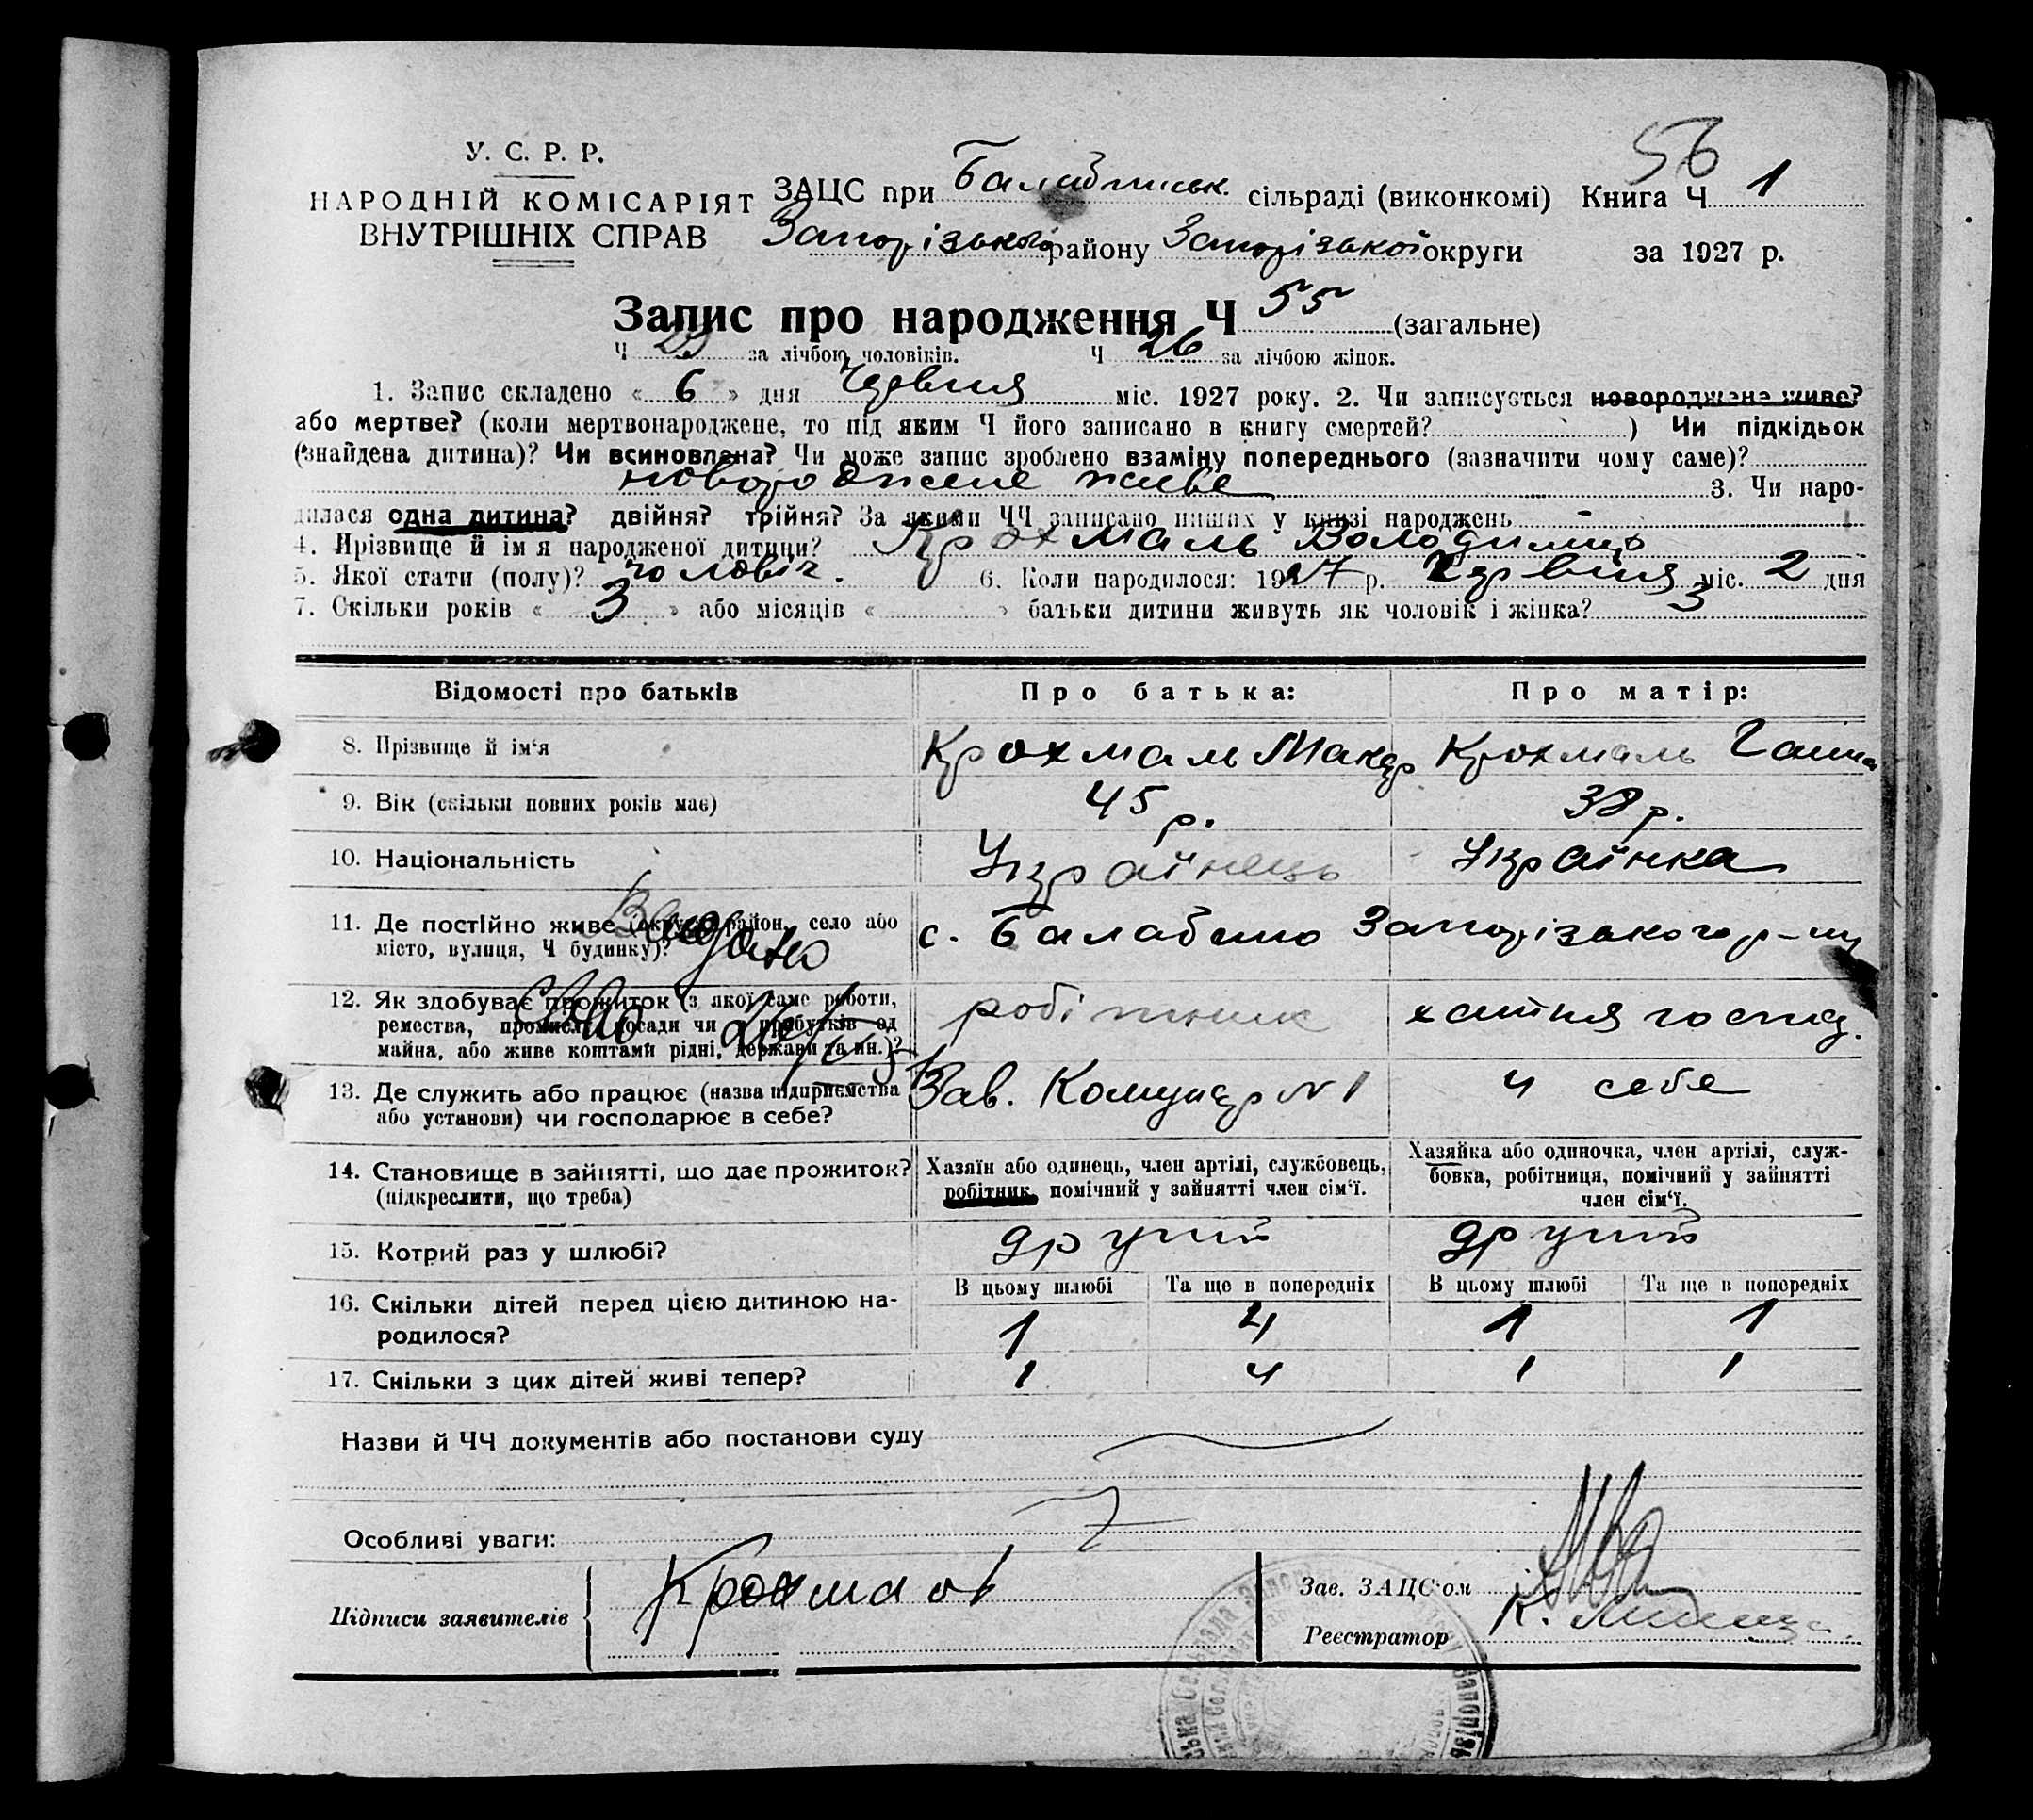 56
У. С. Р. Р.
НАРОДНІЙ КОМІСАРІЯТ
ВНУТРІШНІХ СПРАВ
ЗАЦС при Балабинськ. сільраді (виконкомі) Книга Ч 1
Запорізького району Запорізької округи за 1927 р.
Запис про народження Ч 55 (загальне)
Ч за лічбою чоловіків. Ч 26 за лічбою жінок.
1. Запис складено « 6 » дня Червня міс. 1927 року. 2. Чи записується новороджене живе?
або мертве? (коли мертвонароджене, то під яким Ч його записано в книгу смертей? ) Чи підкідьок
(знайдена дитина)? Чи всиновлена? Чи може запис зроблено взаміну попереднього (зазначити чому саме)?
новороджене живе 3. Чи наро-
дилася одна дитина? двійня? трійня? За якими ЧЧ записано инших у книзі народжень -
4. Прізвище й ім'я народженої дитини? Крохмаль Володимир
5. Якої стати (полу)? чоловіч. 6. Коли народилося: 1927 р. Червня міс. 2 дня
7. Скільки років « 3 » або місяців « » батьки дитини живуть як чоловік і жінка? 3
Відомості про батьків Про батька: Про матір:
8. Прізвище й ім'я Крохмаль Макар Крохмаль Ганна
9. Вік (скільки повних років має) 45 р. 38 р.
10. Національність Українець Українка
11. Де постійно живе (округа, район, село або
місто, вулиця, Ч будинку)? с. Балабино Запорізького р-ну
12. Як здобуває прожиток (з якої саме роботи,
ремества, промислу, посади чи з прибутків од
майна, або живе коштами рідні, держави та ин.)? робітник хатня господ.
13. Де служить або працює (назва підприємства
або установи) чи господарює в себе? Зав. Комунар N 1 у себе
14. Становище в зайнятті, що дає прожиток?
(підкреслити, що треба)
Хазяїн або одинець, член артілі, службовець,
робітник, помічний у зайнятті член сім'ї.
Хазяйка або одиночка, член артілі, служ-
бовка, робітниця, помічний у зайнятті
член сім'ї.
15. Котрий раз у шлюбі? другий другий
16. Скільки дітей перед цією дитиною на-
родилося?
В цьому шлюбі Та ще в попередніх В цьому шлюбі Та ще в попередніх
1 4 1 1
17. Скільки з цих дітей живі тепер? 1 4 1 1
Назви й ЧЧ документів або постанови суду
Особливі уваги:
Підписи заявителів
Зав. ЗАЦС'ом
Реєстратор